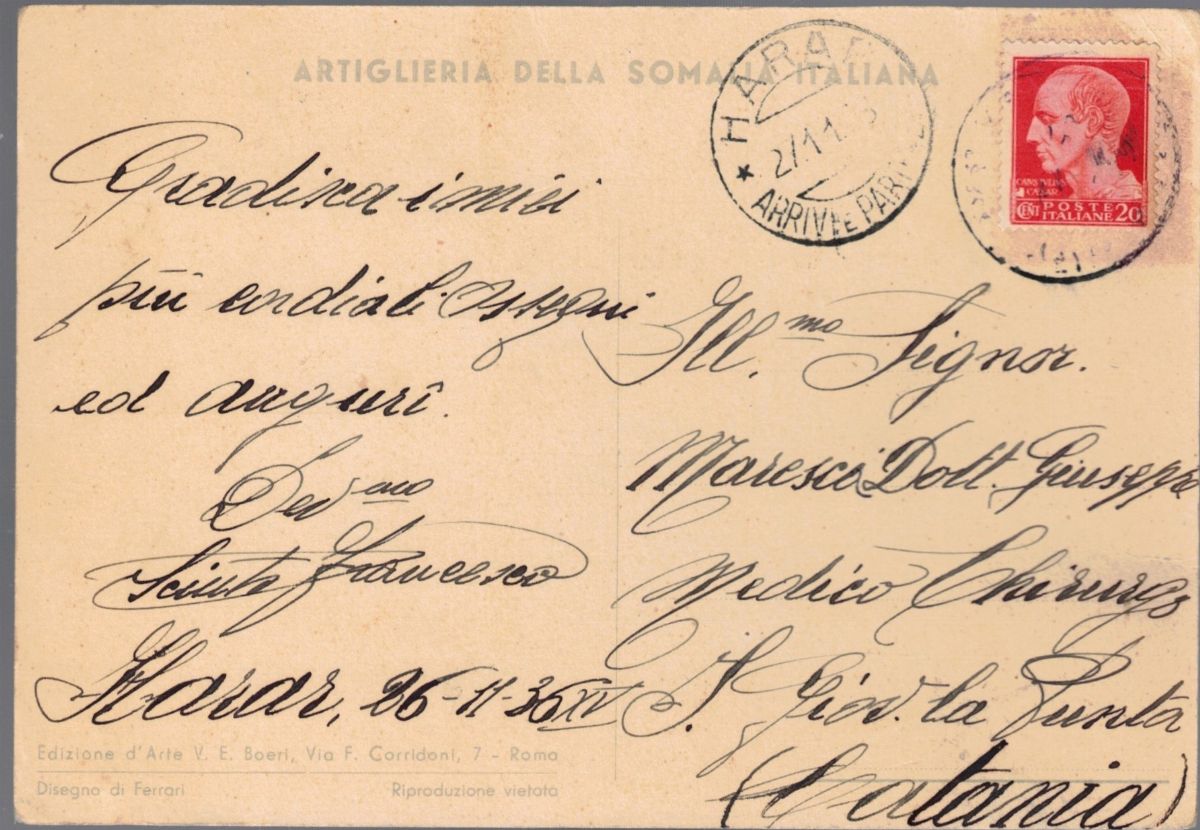 ARTIGLIERIA DELLA SOMALIA ITALIANA
HARAR
27.11.36
ARRIVI E PARTENZE
CENT POSTE ITALIANE 20
Gradisca i miei
più cordiali ossequi
ed auguri.
Dev.mo
Sciuto Francesco
Harar, 26-11-36 XV
Ill.mo Signor.
Maresci Dott. Giuseppe
Medico Chirurgo
S. Giov. la Punta
(Catania)
Edizione d'Arte V. E. Boeri, Via F. Corridoni, 7 - Roma
Disegno di Ferrari
Riproduzione vietata